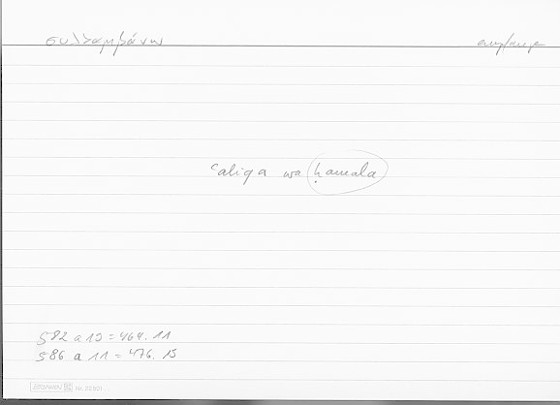 συλλαμβάνω empfange
ʿaliqa wa ḥamala
582 a 19 = 464. 11
586 a 11 = 476. 15